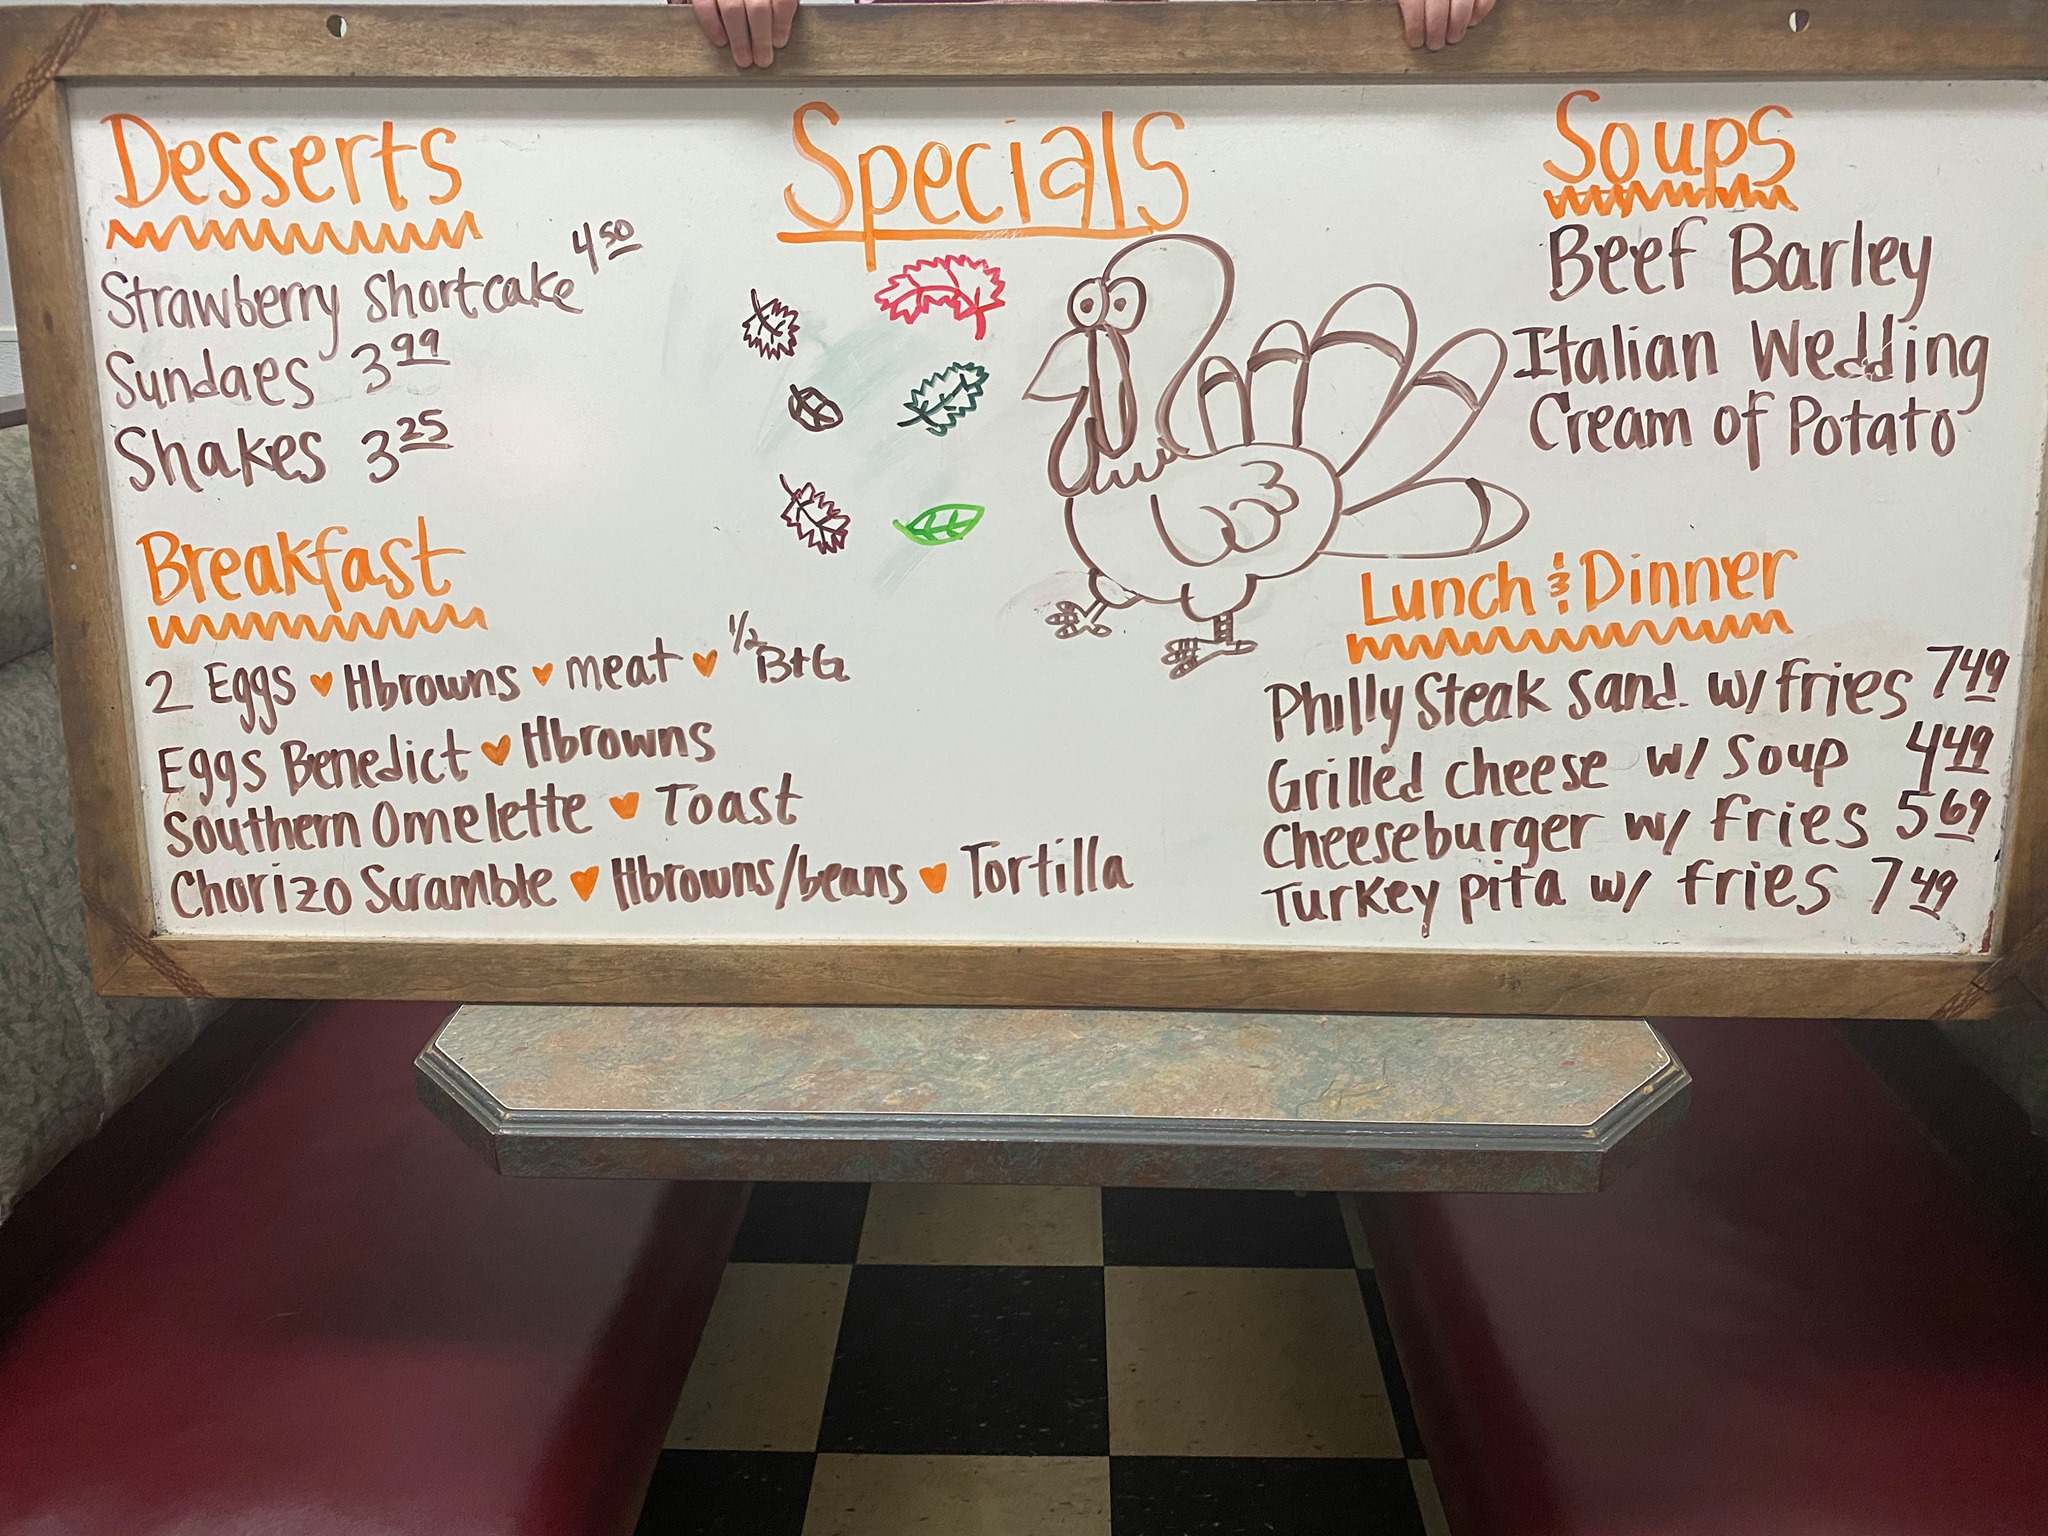 Specials
Desserts
Strawberry Shortcake 4.50
Sundaes 3.99
Shakes 3.25
Breakfast
2 Eggs ♥ Hbrowns ♥ meat ♥ 1/2 B+G
Eggs Benedict ♥ Hbrowns
Southern Omelette ♥ Toast
Chorizo Scramble ♥ Hbrowns/beans ♥ Tortilla
Soups
Beef Barley
Italian Wedding
Cream of Potato
Lunch & Dinner
Philly Steak Sand. w/ fries 7 49
Grilled cheese w/ Soup 4 49
Cheeseburger w/ fries 5 69
Turkey pita w/ fries 7 49